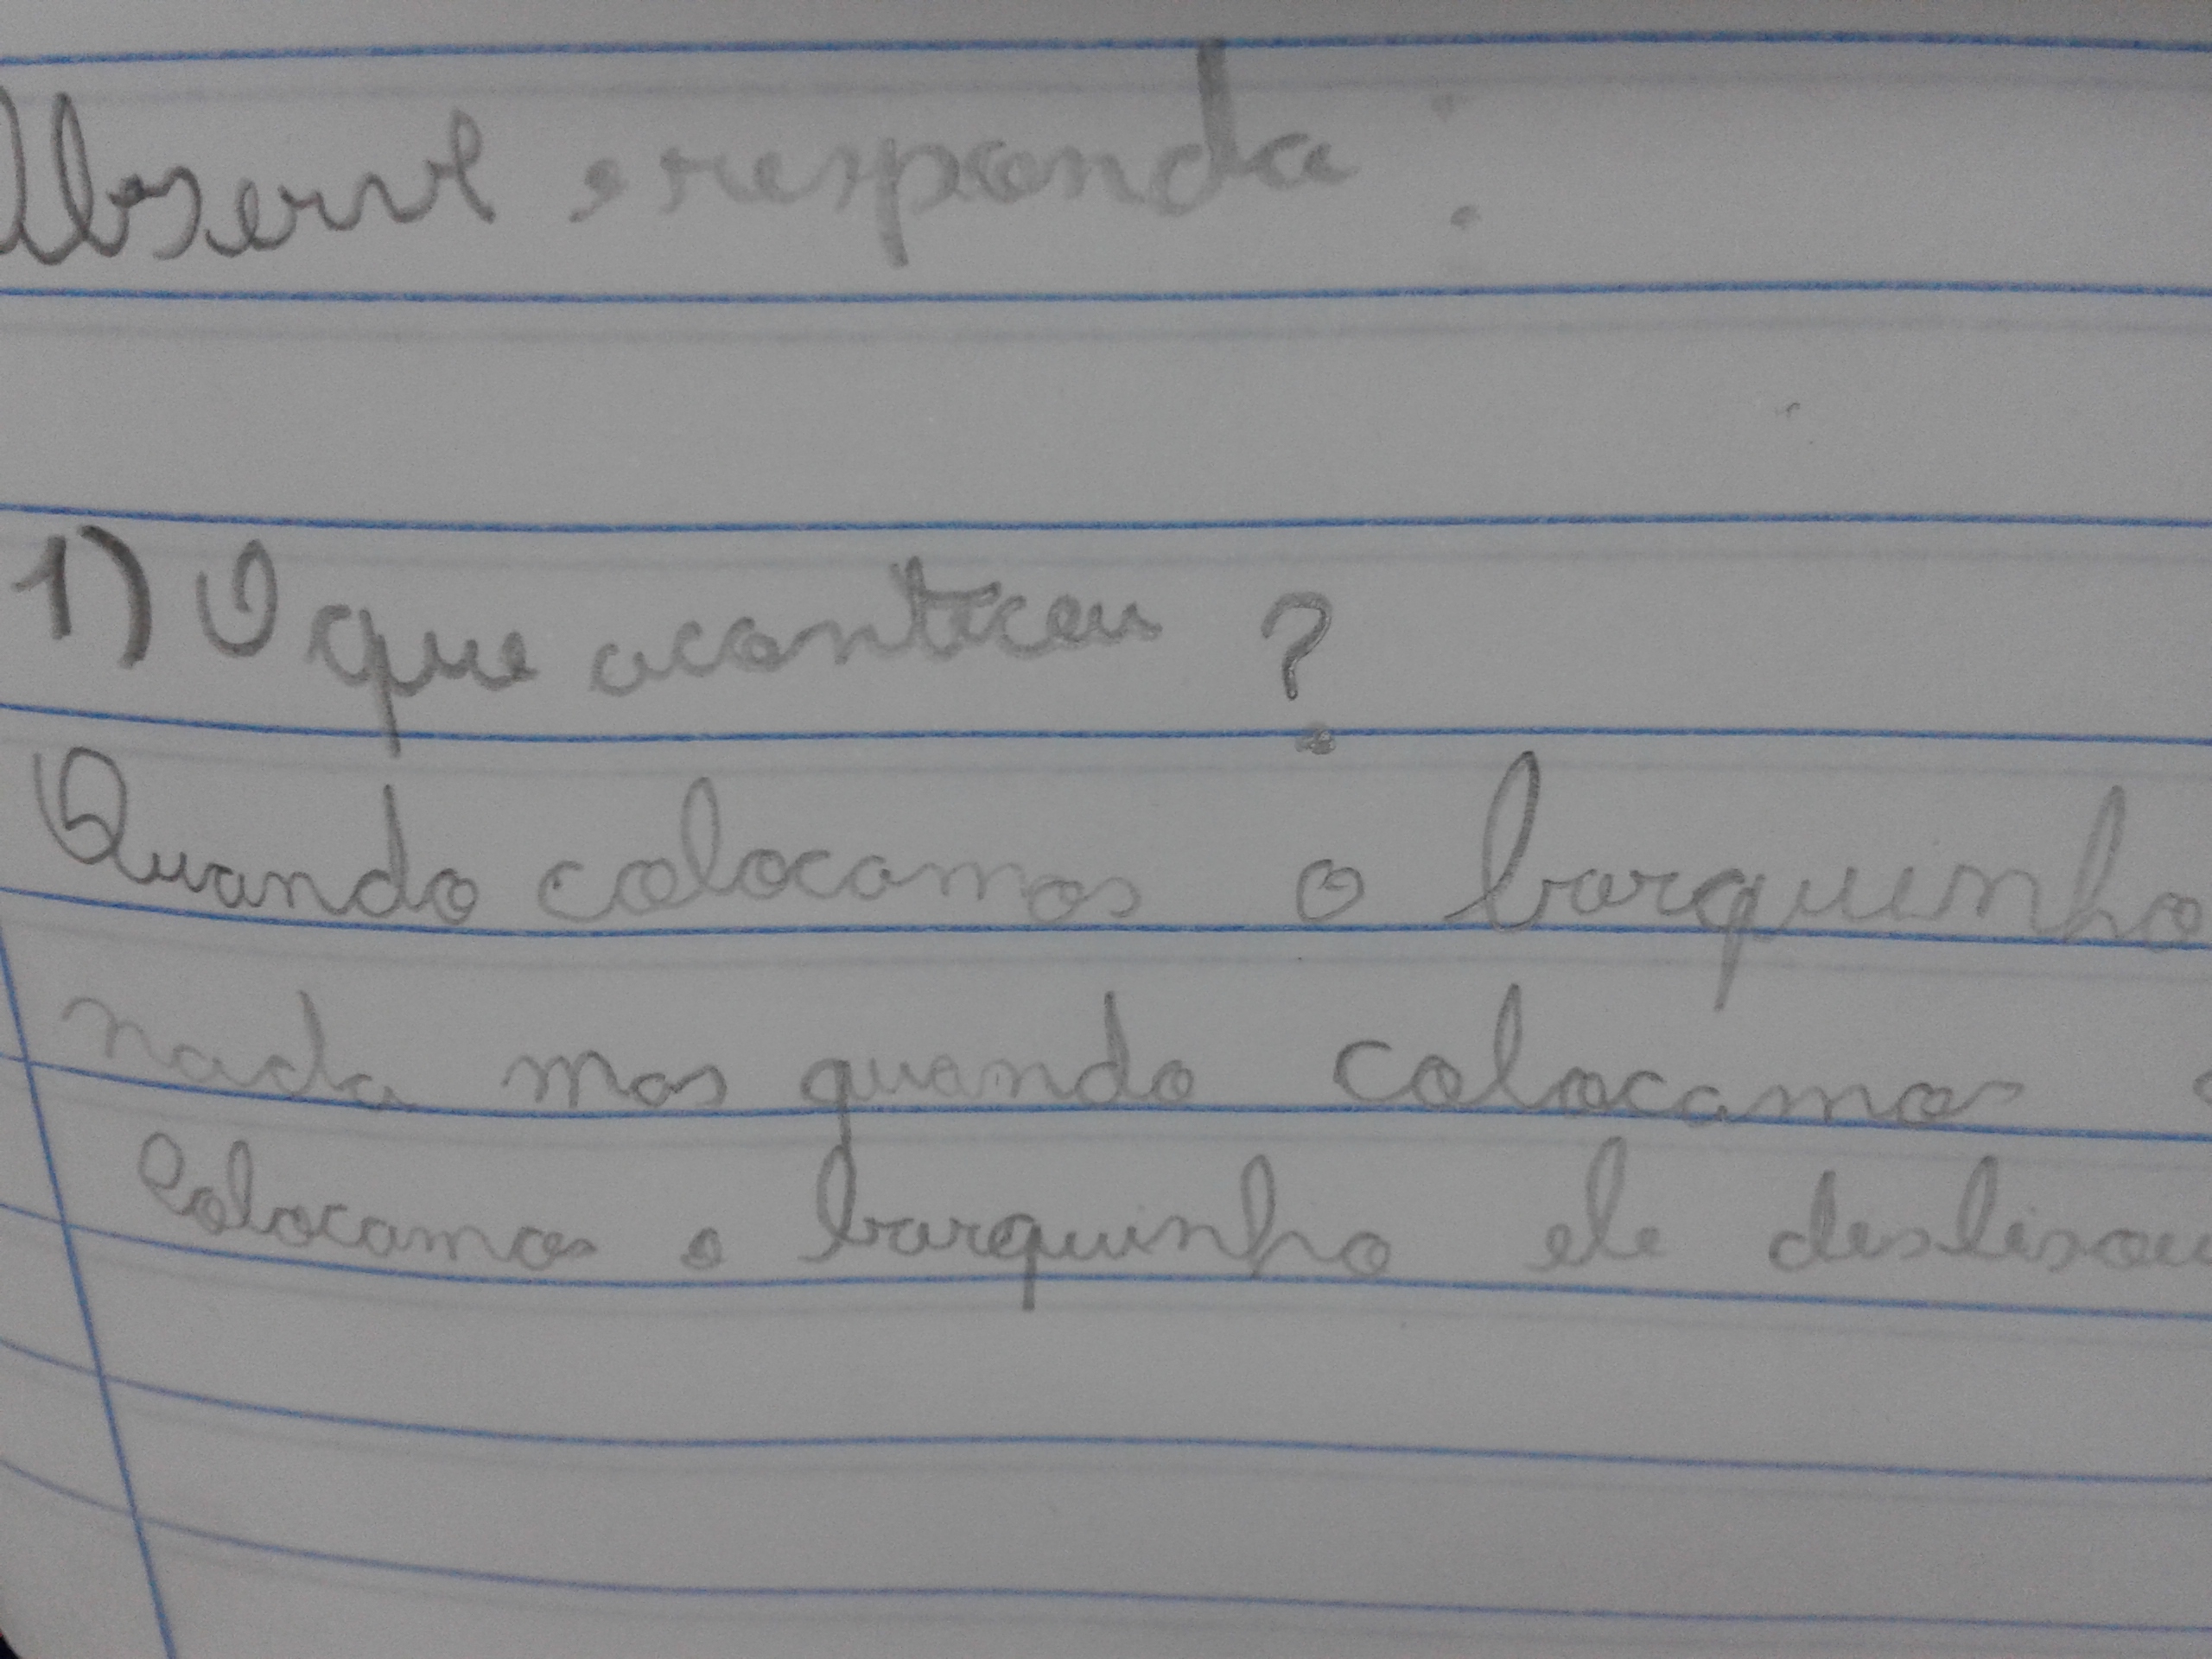 Observe e responda:
1) O que aconteceu ?
Quando colocamos o barquinho
nada mas quando colocamos
Colocamos o barquinho ele deslisou